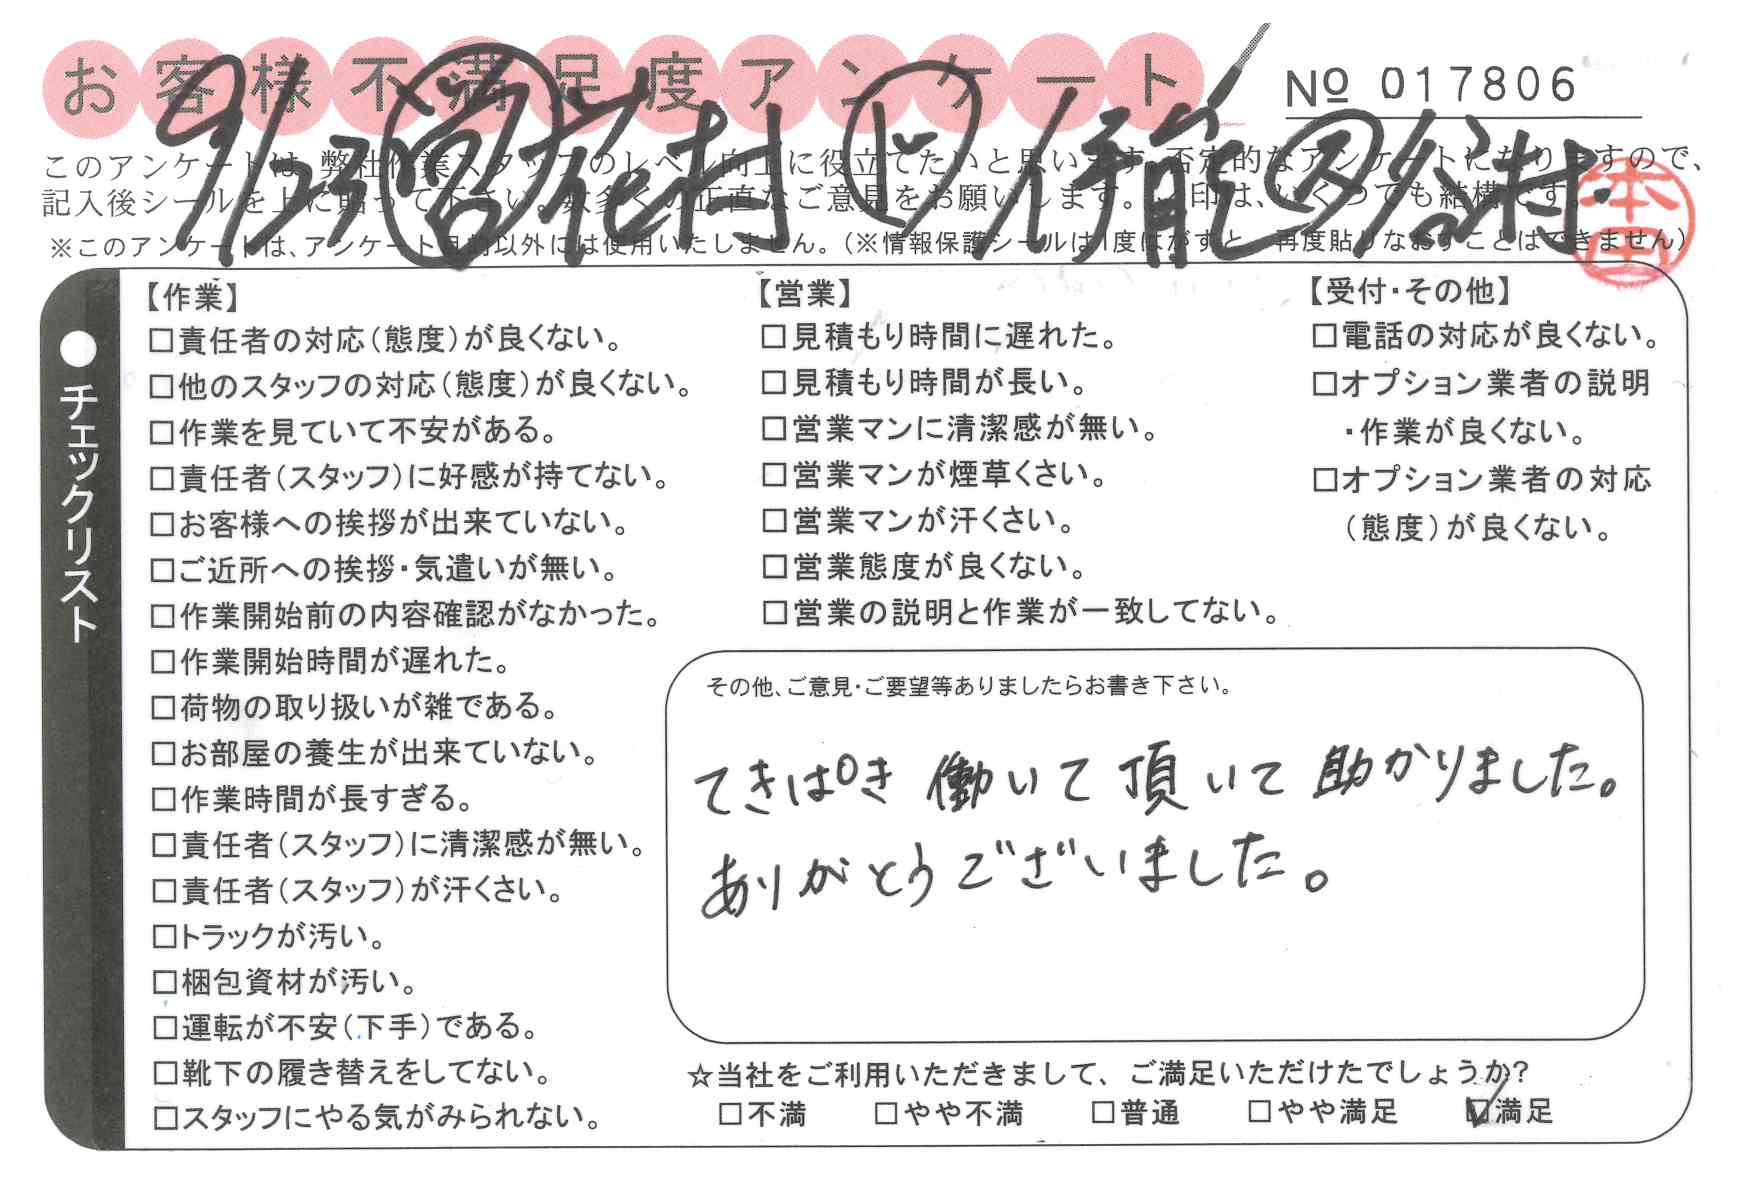 お客様不満足度アンケート
№ 017806
9/23 花村 ト 伊能 谷村
このアンケートは、弊社作業スタッフのレベル向上に役立てたいと思います。否定的なアンケートになりますので、
記入後シールを上に貼って下さい。数多くの正直なご意見をお願いします。✓印は、いくつでも結構です。
※このアンケートは、アンケート目的以外には使用いたしません。(※情報保護シールは1度はがすと、再度貼りなおすことはできません)
本田
●チェックリスト
【作業】
□責任者の対応(態度)が良くない。
□他のスタッフの対応(態度)が良くない。
□作業を見ていて不安がある。
□責任者(スタッフ)に好感が持てない。
□お客様への挨拶が出来ていない。
□ご近所への挨拶・気遣いが無い。
□作業開始前の内容確認がなかった。
□作業開始時間が遅れた。
□荷物の取り扱いが雑である。
□お部屋の養生が出来ていない。
□作業時間が長すぎる。
□責任者(スタッフ)に清潔感が無い。
□責任者(スタッフ)が汗くさい。
□トラックが汚い。
□梱包資材が汚い。
□運転が不安(下手)である。
□靴下の履き替えをしてない。
□スタッフにやる気がみられない。
【営業】
□見積もり時間に遅れた。
□見積もり時間が長い。
□営業マンに清潔感が無い。
□営業マンが煙草くさい。
□営業マンが汗くさい。
□営業態度が良くない。
□営業の説明と作業が一致してない。
【受付・その他】
□電話の対応が良くない。
□オプション業者の説明
・作業が良くない。
□オプション業者の対応
(態度)が良くない。
その他、ご意見・ご要望等ありましたらお書き下さい。
てきぱき働いて頂いて助かりました。
ありがとうございました。
☆当社をご利用いただきまして、ご満足いただけたでしょうか?
□不満 □やや不満 □普通 □やや満足 ☑満足